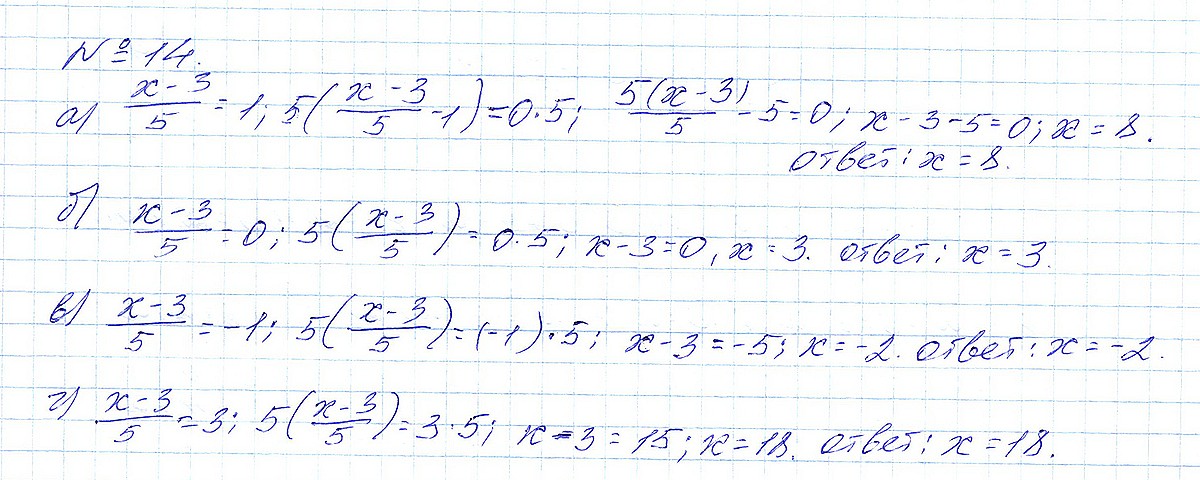 № 14.
а) (x-3)/5 = 1; 5((x-3)/5 - 1) = 0·5; 5(x-3)/5 - 5 = 0; x-3-5=0; x = 8.
ответ: x = 8.
б) (x-3)/5 = 0; 5((x-3)/5) = 0·5; x-3=0, x = 3. ответ: x = 3.
в) (x-3)/5 = -1; 5((x-3)/5) = (-1)·5; x-3 = -5; x = -2. ответ: x = -2.
г) (x-3)/5 = 3; 5((x-3)/5) = 3·5; x-3 = 15; x = 18. ответ: x = 18.